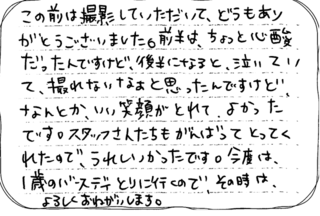 この前は撮影していただいて、どうもあり
がとうございました。前半は、ちょっと心酸
だったんですけど、後半になると、泣いてい
て、撮れないなぁと思ったんですけど、
なんとか、いい笑顔がとれて、よかった
です。スタッフさんたちもがんばってとってく
れたので、うれしいかったです。今度は、
1歳のバースデイとりに行くので、その時は、
よろしくおねがいします。